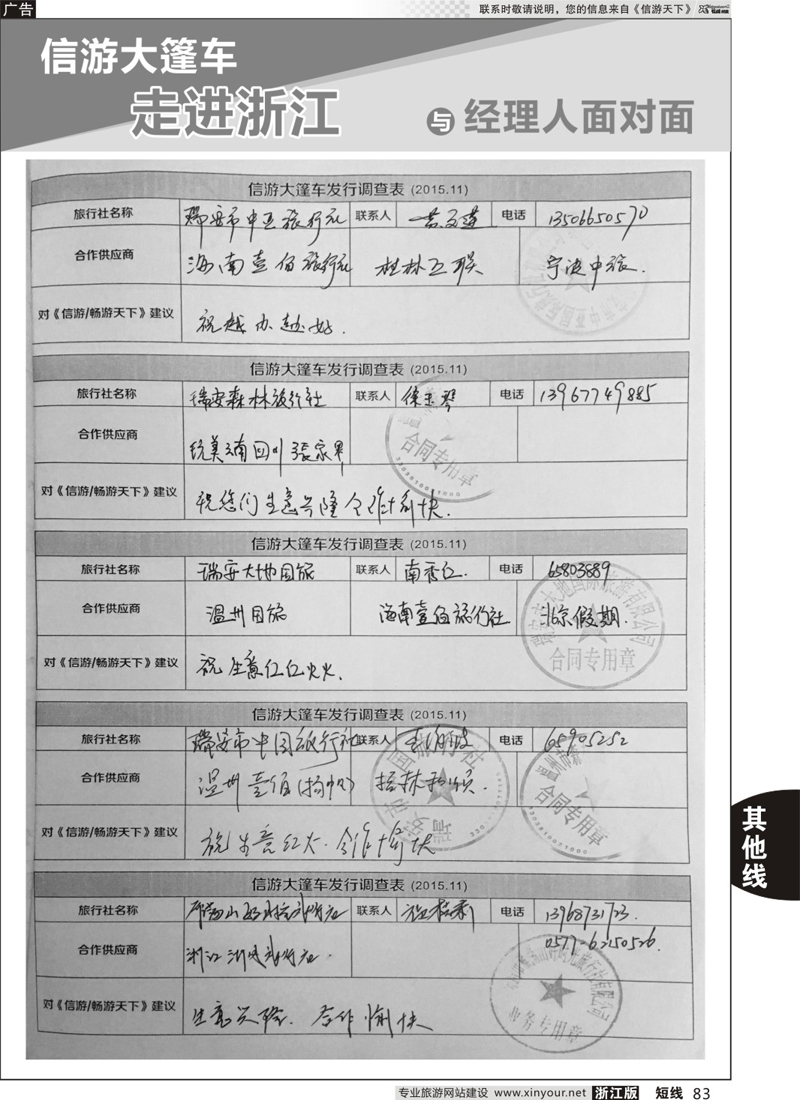 广告
联系时敬请说明，您的信息来自《信游天下》
信游大篷车
走进浙江
与 经理人面对面
信游大篷车发行调查表 (2015.11)
旅行社名称 瑞安市中亚旅行社 联系人 电话 13506650570
合作供应商 海南壹佰旅行社 桂林互联 宁波中旅.
对《信游/畅游天下》建议 祝越办越好.
信游大篷车发行调查表 (2015.11)
旅行社名称 瑞安森林旅行社 联系人 徐玉琴 电话 13967749885
合作供应商 云南四川 張家界
合同专用章
对《信游/畅游天下》建议 祝您们生意兴隆 合作愉快.
信游大篷车发行调查表 (2015.11)
旅行社名称 瑞安大地国旅 联系人 南香仁. 电话 65803889
合作供应商 温州国旅 海南壹佰旅行社 北京假期.
合同专用章
对《信游/畅游天下》建议 祝生意红红火火.
信游大篷车发行调查表 (2015.11)
旅行社名称 瑞安市中国旅行社 联系人 电话 65905252
合作供应商 温州壹佰 桂林
合同专用章
对《信游/畅游天下》建议 祝生意红火.合作愉快
信游大篷车发行调查表 (2015.11)
旅行社名称 联系人 电话 13968731723
0577-62150526.
合作供应商 浙江
业务专用章
对《信游/畅游天下》建议 生意兴隆. 合作愉快
其他线
专业旅游网站建设 www.xinyour.net 浙江版 短线 83